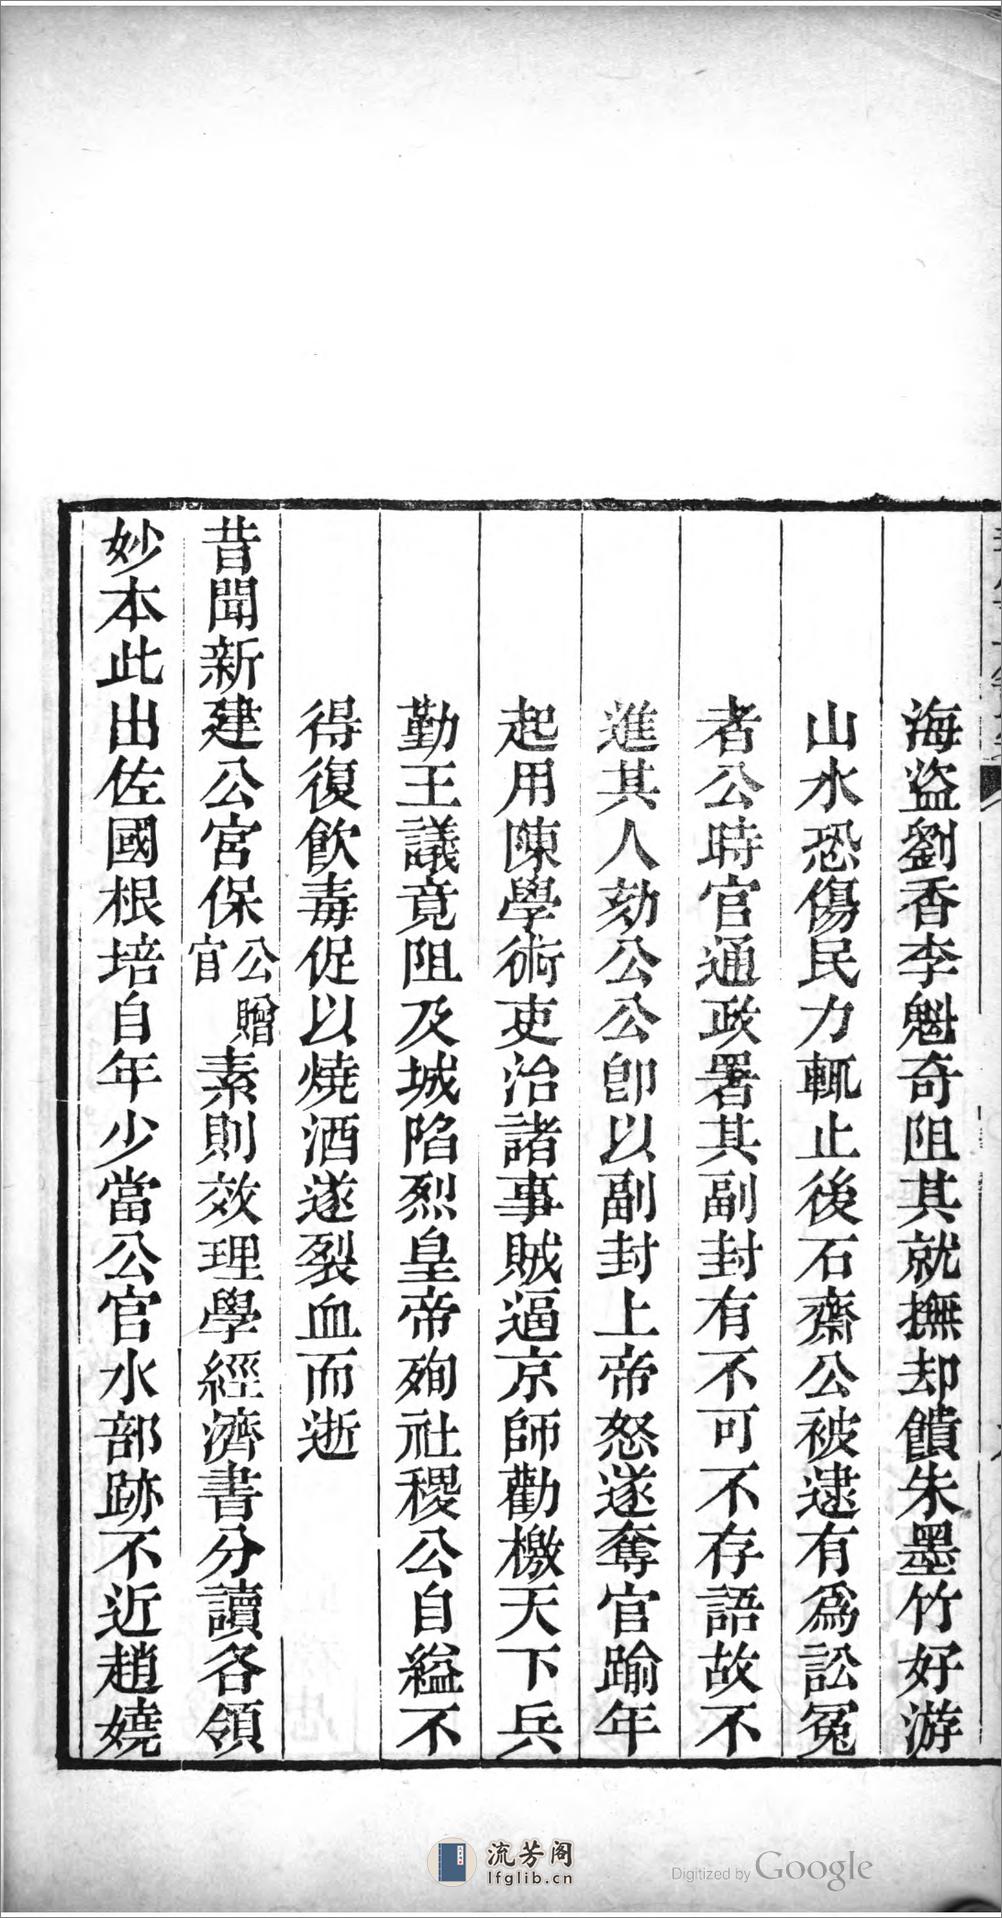 海盜劉香李魁奇阻其就撫却饋朱墨竹好游
山水恐傷民力輒止後石齋公被逮有爲訟冤
者公時官通政署其副封有不可不存語故不
進其人劾公公卽以副封上帝怒遂奪官踰年
起用陳學術吏治諸事賊逼京師勸檄天下兵
勤王議竟阻及城陷烈皇帝殉社稷公自縊不
得復飮毒促以燒酒遂裂血而逝
昔聞新建公宮保公贈官素則效理學經濟書分讀各領
妙本此出佐國根培自年少當公官水部跡不近趙嬈
流芳阁
lfglib.cn
Digitized by Google